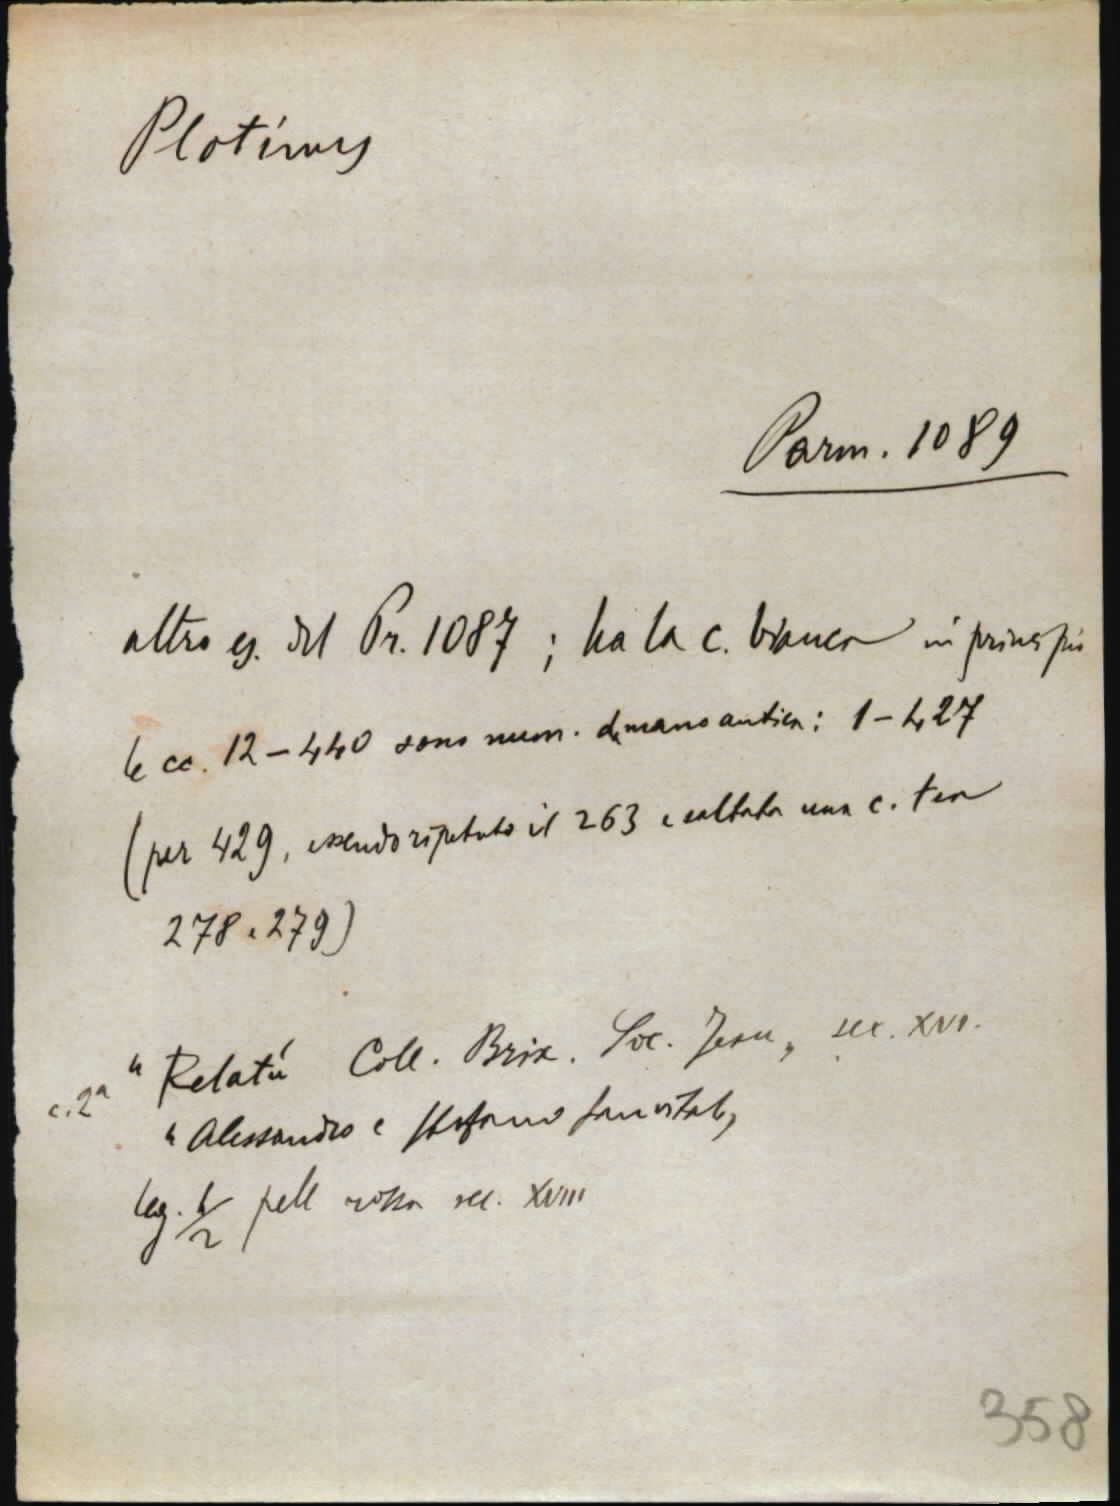 Plotinus
Parm. 1089
altro es. del Pr. 1087 ; ha la c. bianca in principio
le cc. 12-440 sono num. di mano antica: 1-427
(per 429, essendo ripetuto il 263 e saltata una c. tra
278 e 279)
c. 2ª " Relatū Coll. Brix. Soc. Jesu „ sec. XVI.
" Alessandro e Stefano Sanvitale „
leg. 1/2 pelle rossa sec. XVIII
358